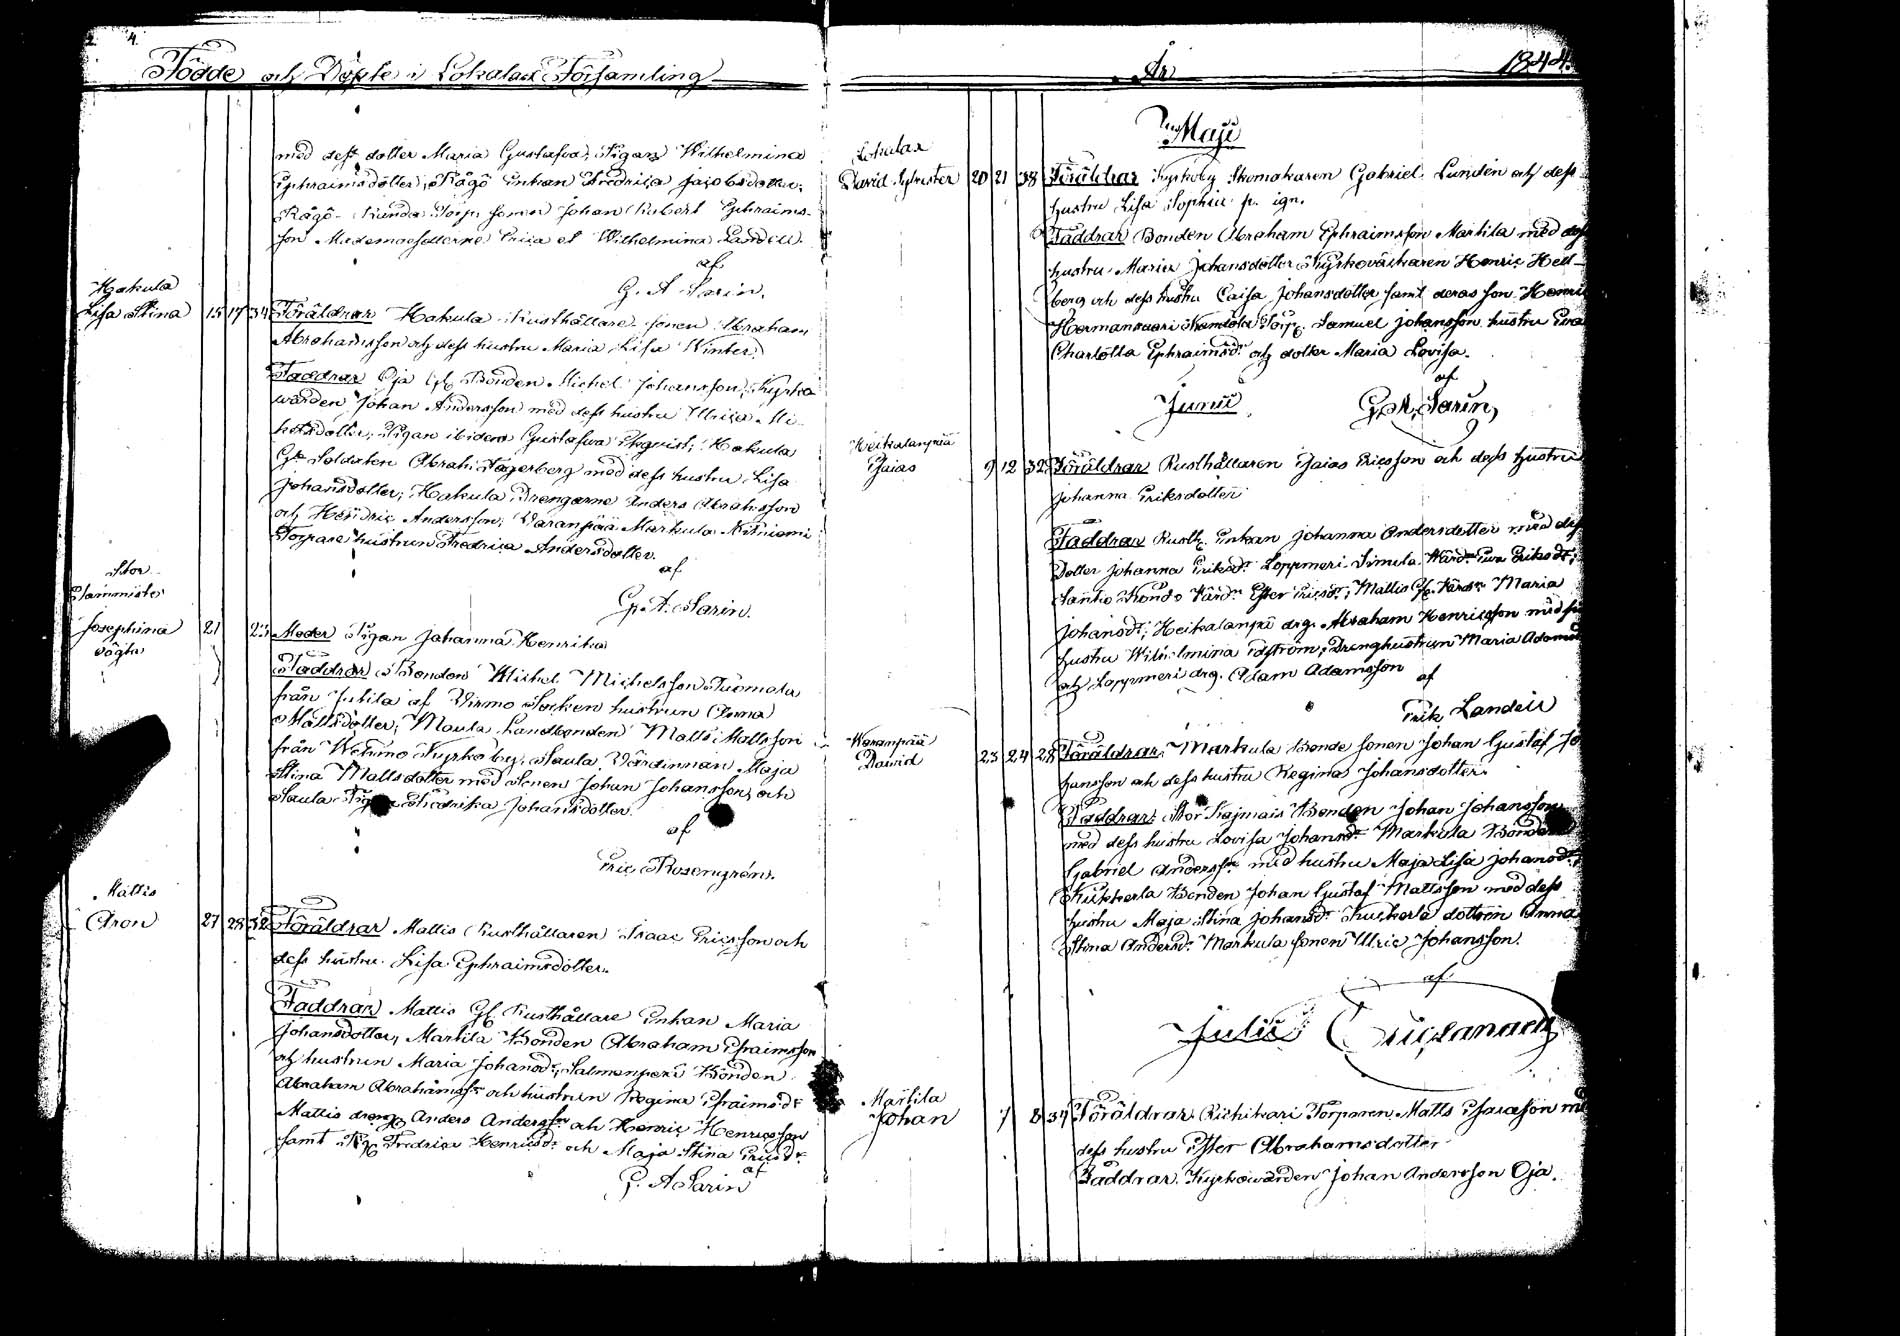 2. 4.
Födde och Döpte i Lokalax Församling
med dess dotter Maria Gustafva, Pigan Wilhelmina
Ephraimsdotter, Rågö Enkan Fredrica Jacobsdotter,
Rågö Torp sonen Johan Robert Ephraims-
son Mademoisellerne Erica et Wilhelmina Landell.
af
G. A. Sarin.
Hakula
Lisa Stina 15 17 34 Föräldrar Hakula Rusthållare sonen Abraham
Abrahamsson och dess hustru Maria Lisa Winter.
Faddrar Oja Bonden Michel Johansson, Kyrko
wärden Johan Andersson med dess hustru Ulrica Mi-
helsdotter, Pigan ibidem Gustafva Hakula
Gl. Soldaten Abrah. Fagerberg med dess hustru Lisa
Johansdotter; Hakula Drengarne Anders Abrahsson
och Hendric Andersson; Varanpää Markula
Torpare hustrun Fredrica Andersdotter.
af
G. A. Sarin.
Stor
Tamminsto
Josephina 21 23 Moder Pigan Johanna Henrika
oägta
Faddrar Bonden Michel Michelsson Tuomola
från Jutila af Virmo Socken hustrun Anna
Mattsdotter; Maula Landbonden Matts Mattsson
från Wehmo Kyrkoby, Saula Värdinnan Maja
Stina Mattsdotter med Sonen Johan Johansson och
Saula Fredrika Johansdotter.
af
Eric Rosengrén.
Mattis
Aron 27 28 32 Föräldrar Mattis Rusthållaren Isaac Ericsson och
dess hustru Lisa Ephraimsdotter.
Faddrar Mattis Gl. Rusthållare Enkan Maria
Johansdotter, Martila Bonden Abraham Efraimsson
och hustrun Maria Johansdr, Salmenperä Bonden
Abraham Abrahamsson och hustrun Regina Efraimsdr
Mattis dreng Anders Andersson och Henric Henricsson
samt Fredrica Henricsdr och Maja Stina Ericsdr
af
G. A. Sarin
År 1844.
Maji
Lokalax
David Sylvester 20 21 38 Föräldrar Kyrkoby Skomakaren Gabriel Lundén och dess
hustru Lisa Sophia p. ign.
Faddrar Bonden Abraham Ephraimsson Martila med dess
hustru Maria Johansdotter Kyrkoväktaren Henric Hell-
berg och dess hustru Caisa Johansdotter samt deras son Henric
Hermansaari Torp. Samuel Johansson hustru Eva
Charlotta Ephraimsdr och dotter Maria Lovisa.
af
Junii G. A. Sarin,
Heikalanpää
Esaias 9 12 32 Föräldrar Rusthållaren Esaias Ericsson och dess hustru
Johanna Eriksdotter
Faddrar Rusth. Enkan Johanna Andersdotter med dess
Dotter Johanna Eriksdr Loppmeri Simula Värdn Eva Eriksdr;
Santio Värdn Ester Ericsdr; Mattis Gl. Värdn Maria
Johansdr; Heikalanpä drg. Abraham Henricsson med
hustru Wilhelmina Edström; Drenghustrun Maria Adamsdr
och Loppmeri drg. Adam Adamsson
af
Erik Landell
Waranpää
Dawid 23 24 28 Föräldrar Markula Bonde sonen Johan Gustaf Jo
hansson och dess hustru Regina Johansdotter.
Faddrar: Stor Bonden Johan Johansson
med dess hustru Lovisa Johansdr Markula Bonden
Gabriel Anderssn med hustru Maja Lisa Johansdr;
Kukkerla Bonden Johan Gustaf Mattsson med dess
hustru Maja Stina Johansdr Kuckerla dottren Anna
Stina Andersdr Markula sonen Ulric Johansson.
af
Julii
Martila
Johan 7 8 37 Föräldrar Torparen Matts Esaiasson med
dess hustru Ester Abrahamsdotter
Faddrar. Kyrkowärden Johan Andersson Oja.